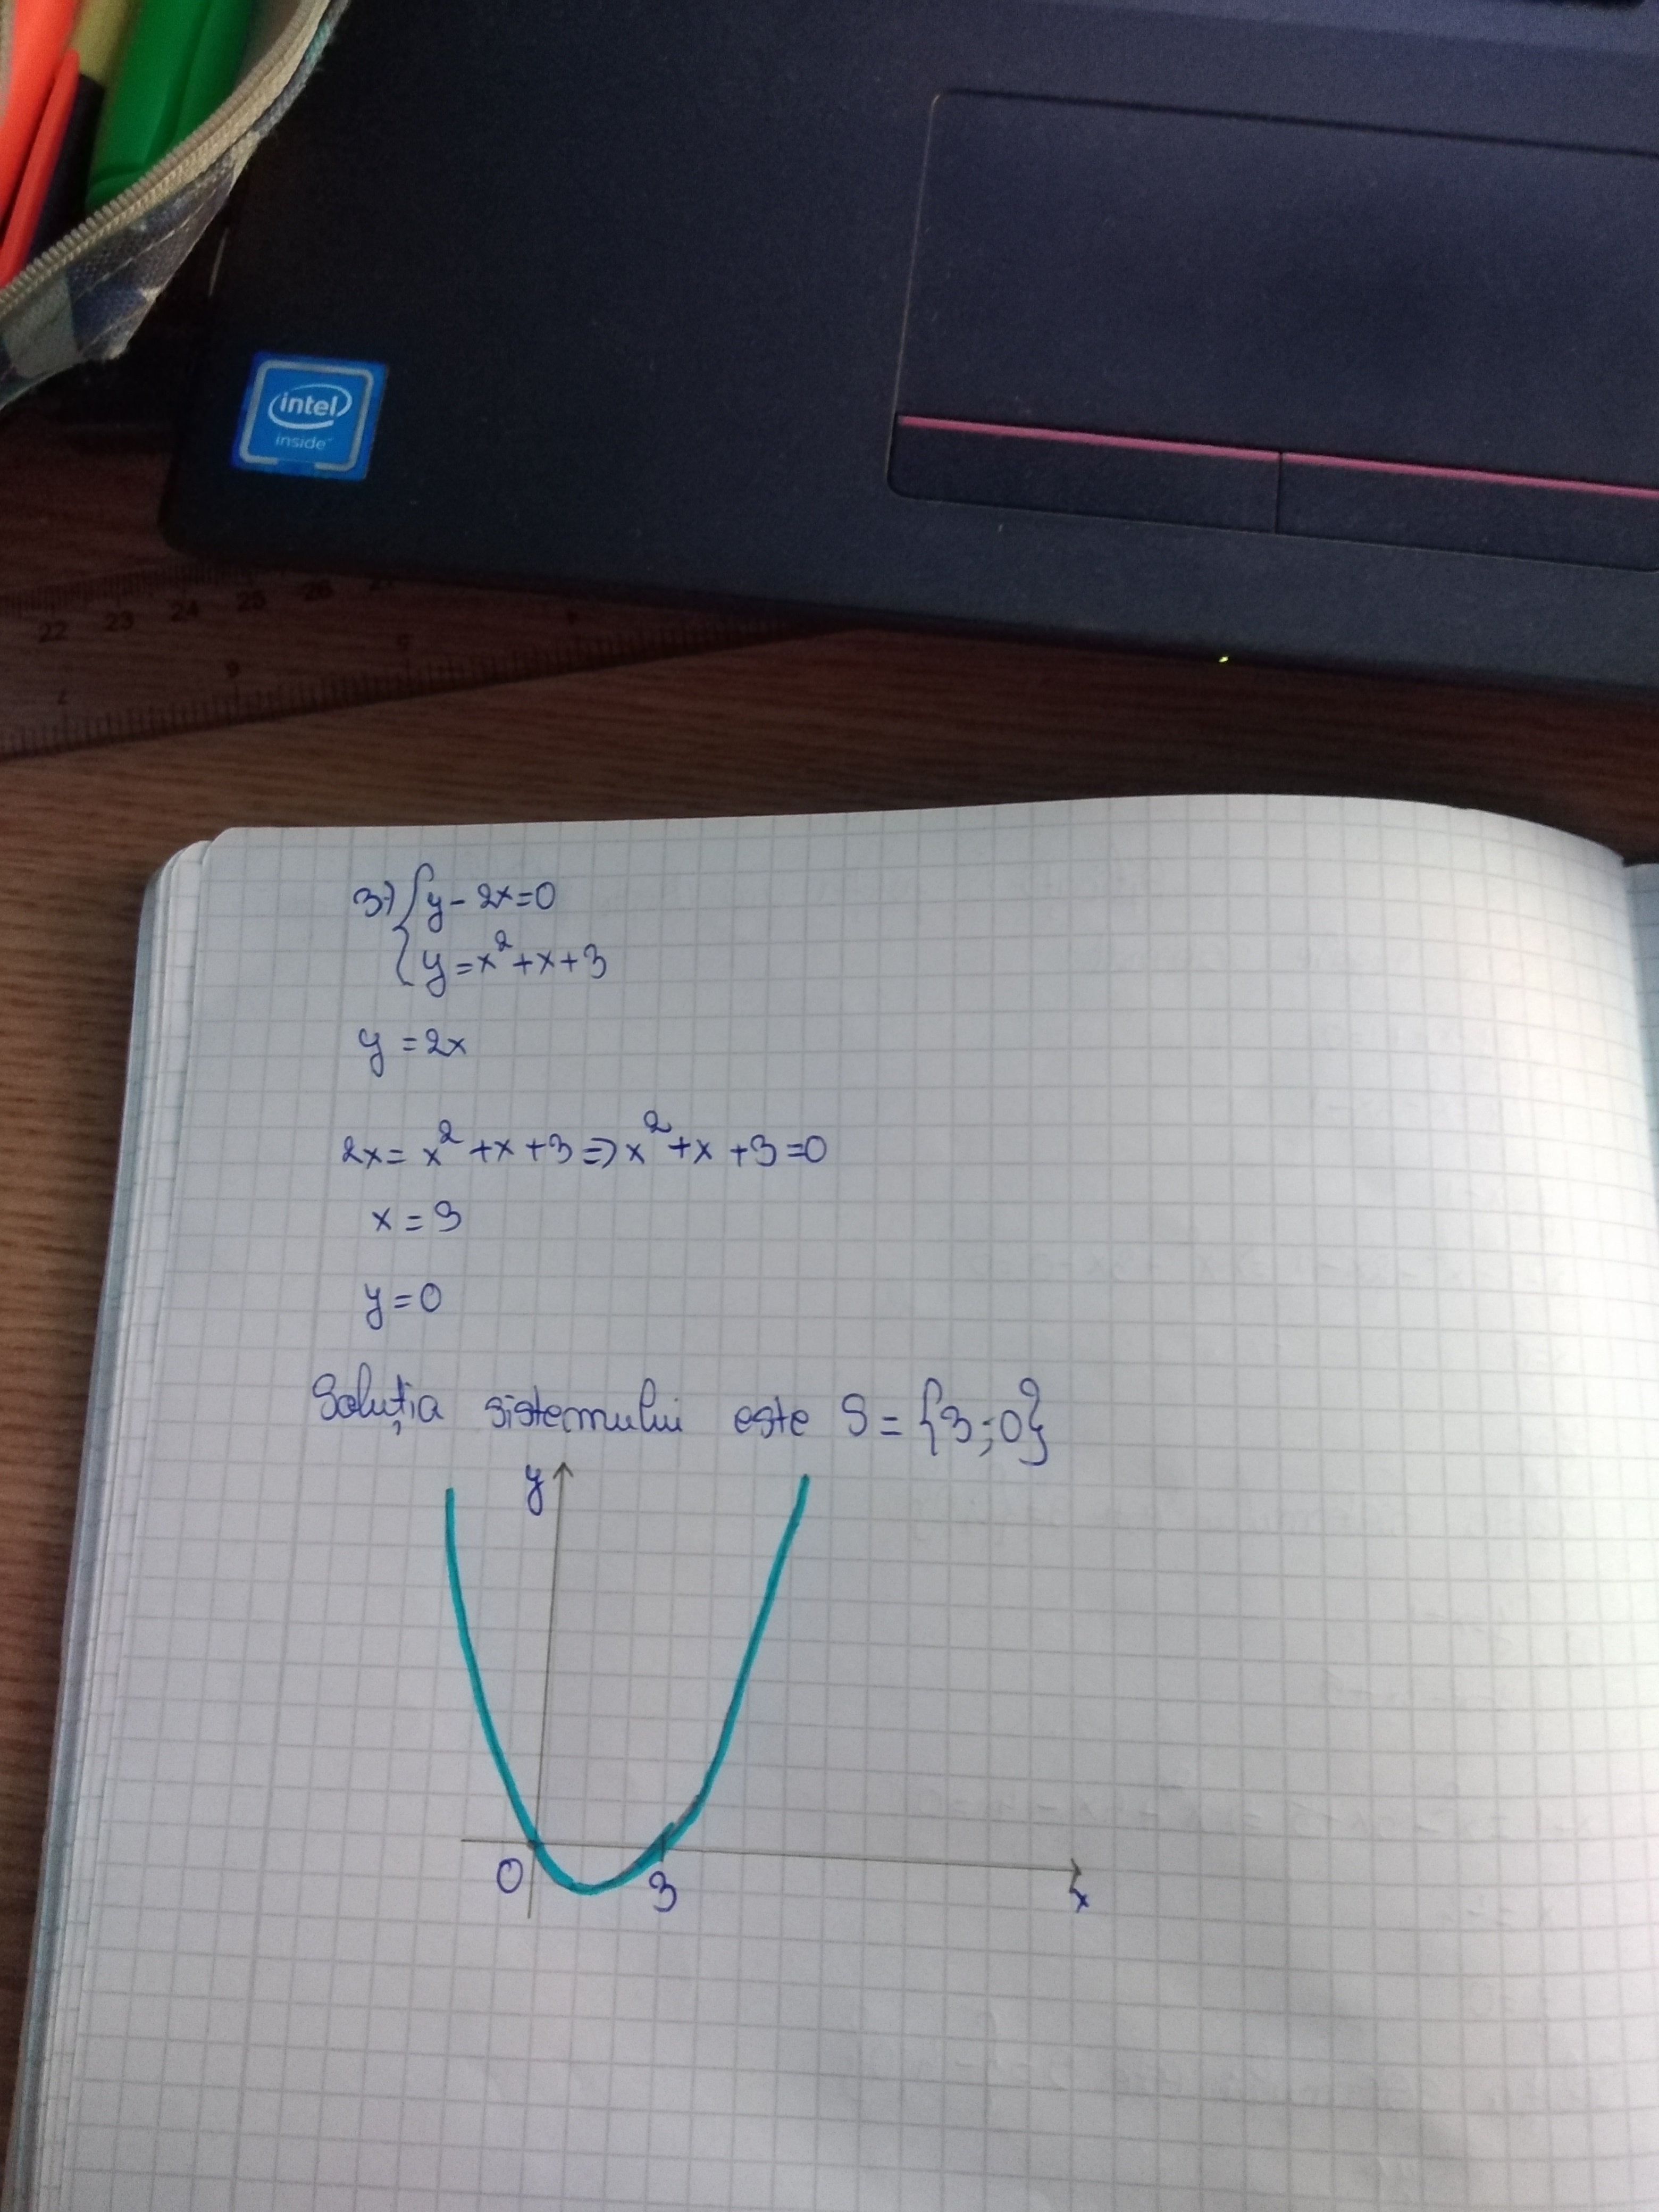 intel
inside
22 23 24 25 26
7 6 5 4
3) { y - 2x = 0
y = x² + x + 3
y = 2x
2x = x² + x + 3 => x² + x + 3 = 0
x = 3
y = 0
Soluția sistemului este S = {3; 0}
y
0 3 x